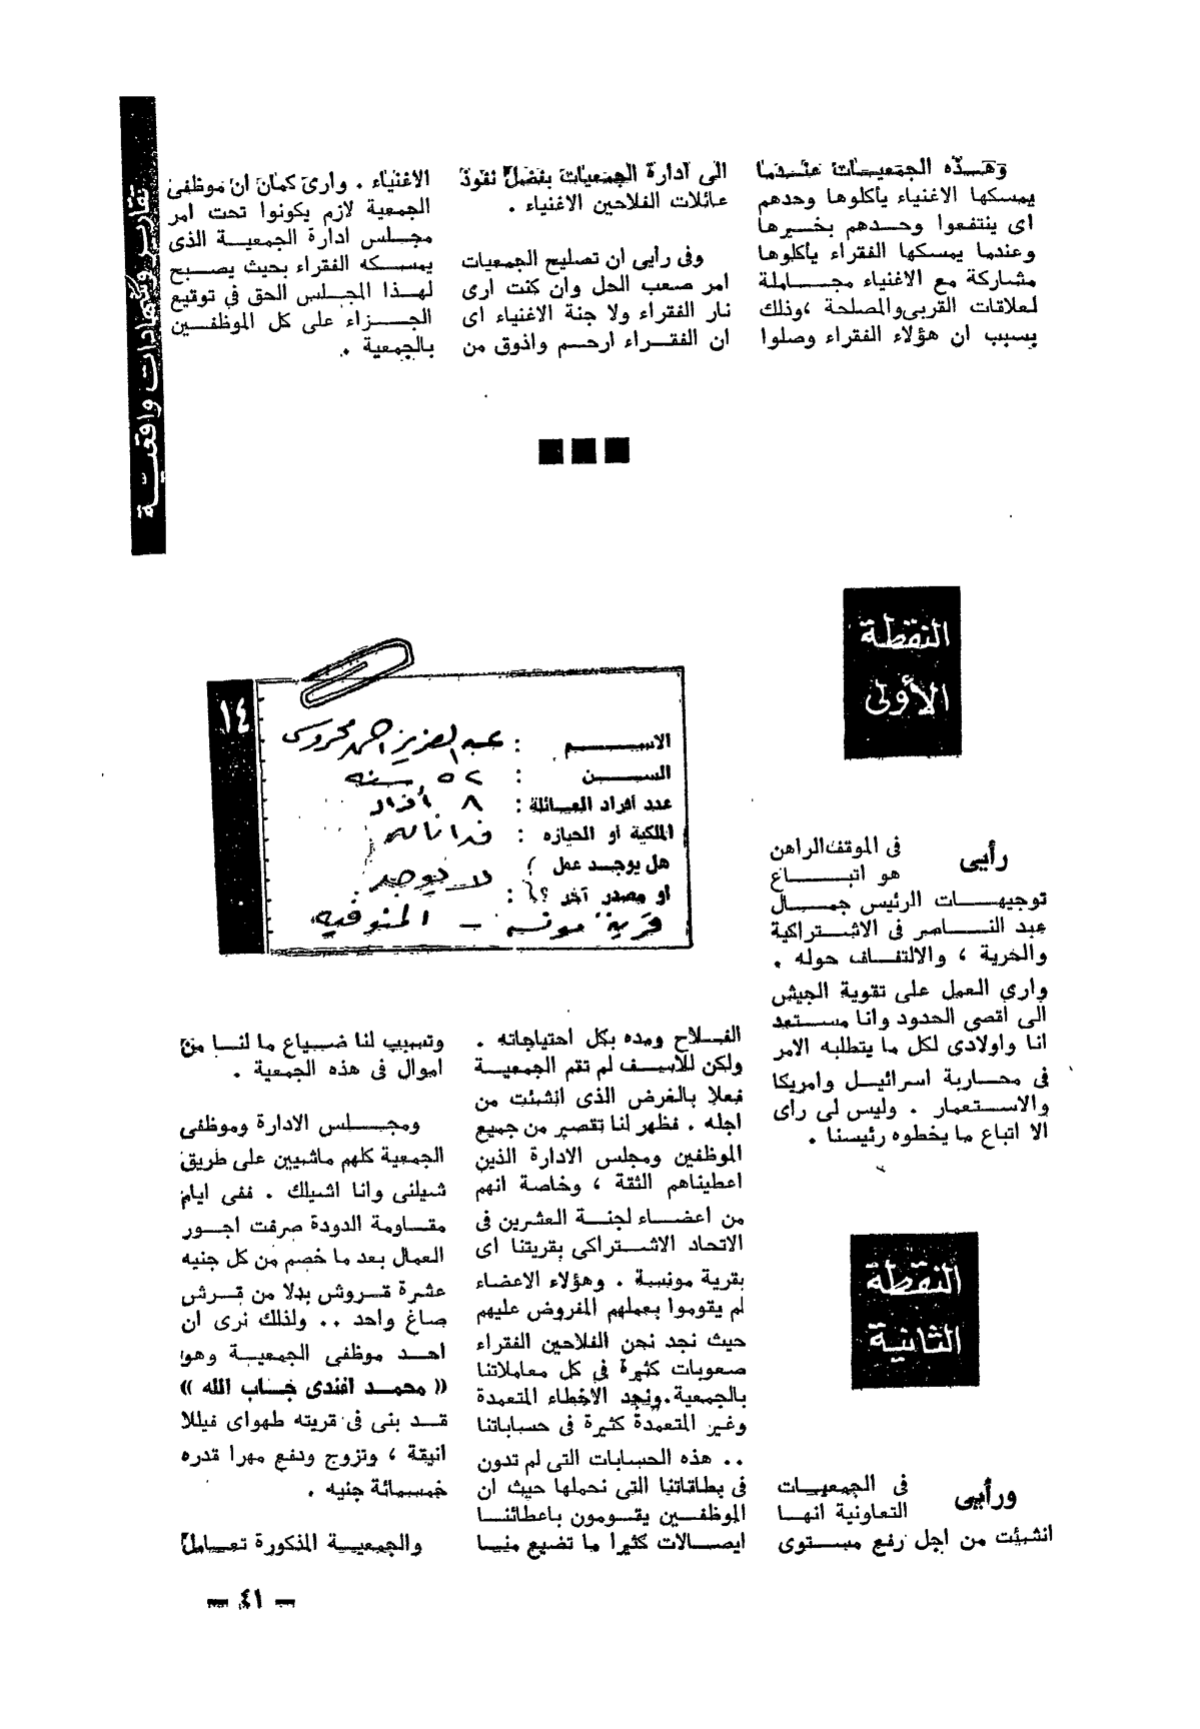 تقارير وشهادات واقعية
وهذه الجمعيات عندما
يمسكها الاغنياء يأكلوها وحدهم
اى ينتفعوا وحدهم بخيرها
وعندما يمسكها الفقراء يأكلوها
مشاركة مع الاغنياء مجاملة
لعلاقات القربى والمصلحة ، وذلك
بسبب ان هؤلاء الفقراء وصلوا
الى ادارة الجمعيات بفضل نفوذ
عائلات الفلاحين الاغنياء .
وفى رأيى ان تصليح الجمعيات
امر صعب الحل وان كنت ارى
نار الفقراء ولا جنة الاغنياء اى
ان الفقراء ارحم واذوق من
الاغنياء . وارى كمان ان موظفى
الجمعية لازم يكونوا تحت امر
مجلس ادارة الجمعية الذى
يمسكه الفقراء بحيث يصبح
لهذا المجلس الحق في توقيع
الجزاء على كل الموظفين
بالجمعية .
النقطة
الأولى
١٤
الاسم : عبد العزيز احمد محروس
السن : ٥٢ سنه
عدد أفراد العائلة : ٨ أفراد
الملكية او الحيازه : فدانان
هل يوجد عمل
او مصدر آخر ؟ : لا يوجد
قرية مونسه - المنوفيه
رأيى
فى الموقف الراهن
هو اتباع
توجيهات الرئيس جمال
عبد الناصر فى الاشتراكية
والحرية ، والالتفاف حوله .
وارى العمل على تقوية الجيش
الى اقصى الحدود وانا مستعد
انا واولادى لكل ما يتطلبه الامر
فى محاربة اسرائيل وامريكا
والاستعمار . وليس لى راى
الا اتباع ما يخطوه رئيسنا .
النقطة
الثانية
ورأيى
فى الجمعيات
التعاونية انها
انشئت من اجل رفع مستوى
الفلاح ومده بكل احتياجاته .
ولكن للاسف لم تقم الجمعية
فعلا بالغرض الذى انشئت من
اجله . فظهر لنا تقصير من جميع
الموظفين ومجلس الادارة الذين
اعطيناهم الثقة ، وخاصة انهم
من اعضاء لجنة العشرين فى
الاتحاد الاشتراكى بقريتنا اى
بقرية مونسة . وهؤلاء الاعضاء
لم يقوموا بعملهم المفروض عليهم
حيث نجد نحن الفلاحين الفقراء
صعوبات كثيرة في كل معاملاتنا
بالجمعية . ونجد الاخطاء المتعمدة
وغير المتعمدة كثيرة فى حساباتنا
.. هذه الحسابات التى لم تدون
فى بطاقاتنا التى نحملها حيث ان
الموظفين يقومون باعطائنا
ايصالات كثيرا ما تضيع منا
وتسبب لنا ضياع ما لنا من
اموال فى هذه الجمعية .
ومجلس الادارة وموظفى
الجمعية كلهم ماشيين على طريق
شيلنى وانا اشيلك . ففى ايام
مقاومة الدودة صرفت اجور
العمال بعد ما خصم من كل جنيه
عشرة قروش بدلا من قرش
صاغ واحد .. ولذلك نرى ان
احد موظفى الجمعية وهو
« محمد افندى خاب الله »
قد بنى فى قريته طهواى فيللا
انيقة ، وتزوج ودفع مهرا قدره
خمسمائة جنيه .
والجمعية المذكورة تعامل
— ٤١ —